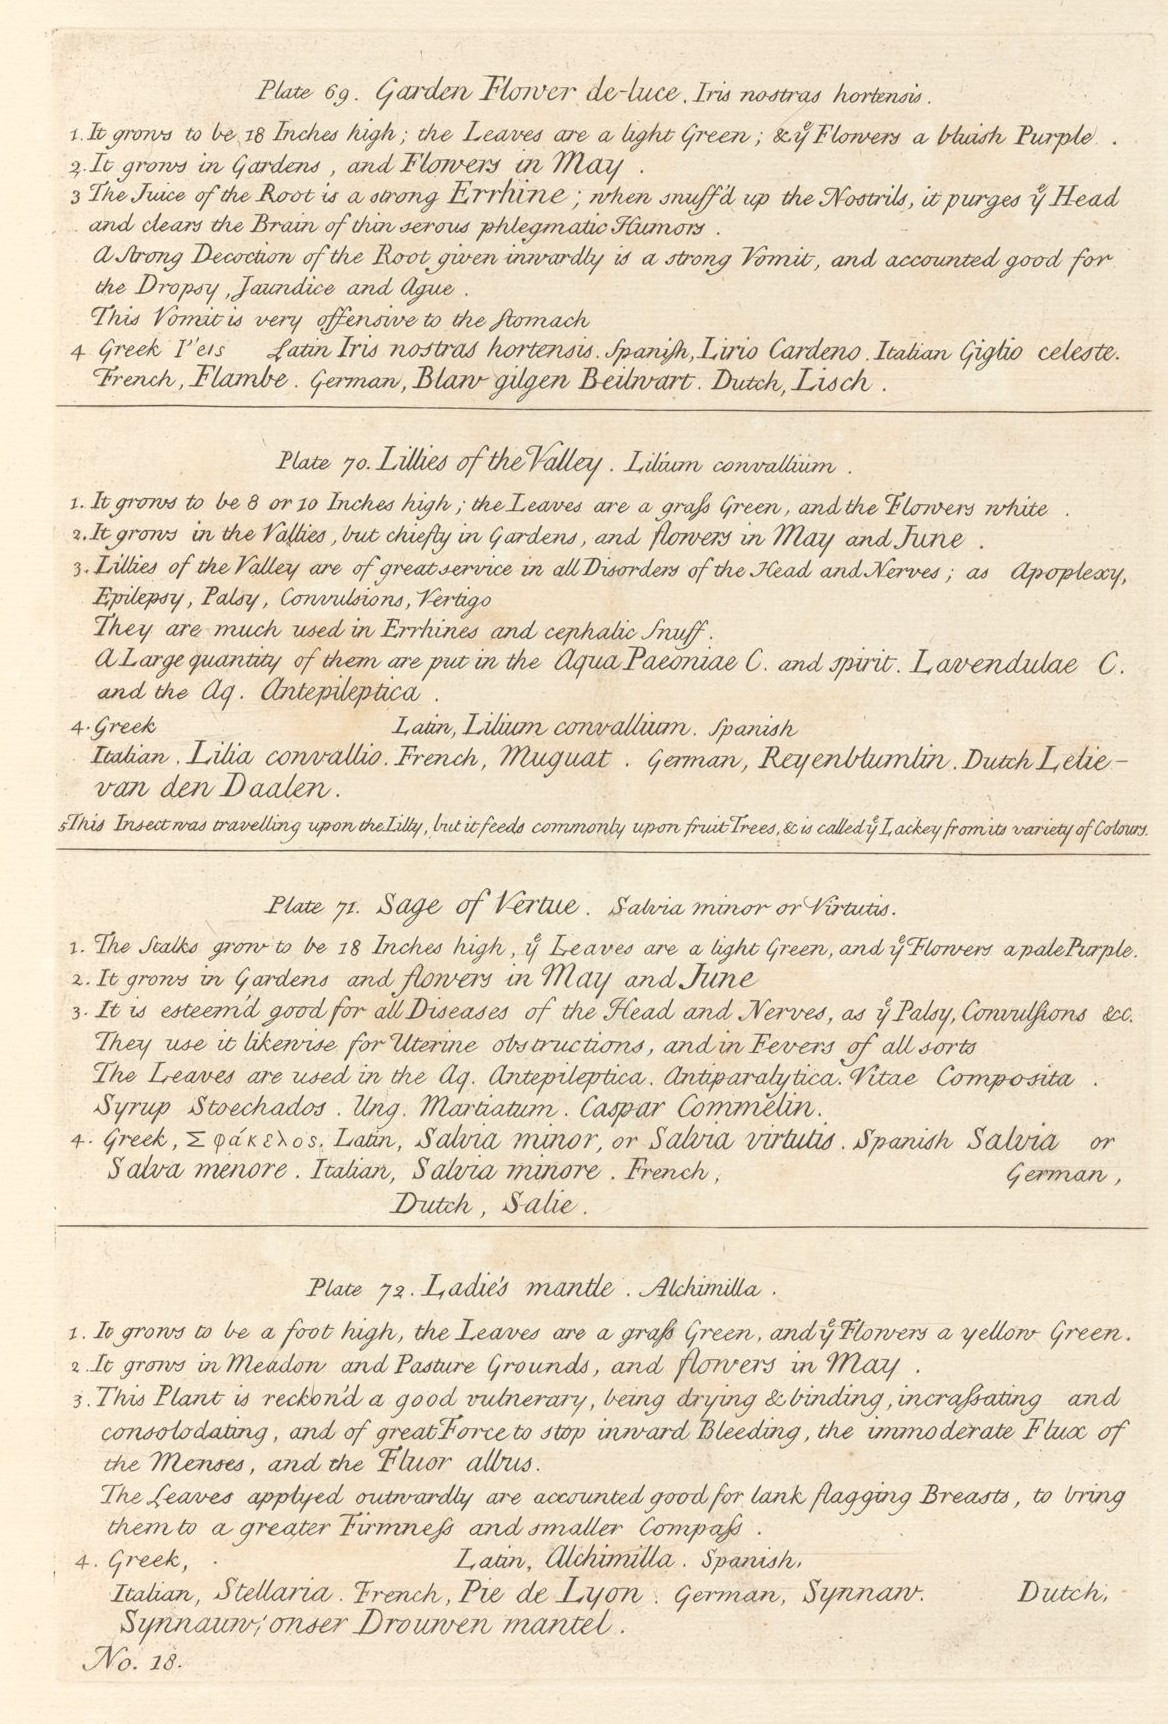 Plate 69. Garden Flower de-luce. Iris nostras hortensis.
1. It grows to be 18 Inches high; the Leaves are a light Green; & yͤ Flowers a bluish Purple.
2. It grows in Gardens, and Flowers in May.
3 The Juice of the Root is a strong Errhine; when snuff'd up the Nostrils, it purges yͤ Head
and clears the Brain of thin serous phlegmatic Humors.
A ſtrong Decoction of the Root given inwardly is a strong Vomit, and accounted good for
the Dropsy, Jaundice and Ague.
This Vomit is very offensive to the ſtomach
4 Greek Latin Iris nostras hortensis. Spaniſh, Lirio Cardeno. Italian Giglio celeste.
French, Flambe. German, Blaw gilgen Beilwart. Dutch, Lisch.
Plate 70. Lillies of the Valley. Lilium convallium.
1. It grows to be 8 or 10 Inches high; the Leaves are a graſs Green, and the Flowers white.
2. It grows in the Vallies, but chiefly in Gardens, and flowers in May and June.
3. Lillies of the Valley are of great service in all Disorders of the Head and Nerves; as Apoplexy,
Epilepsy, Palsy, Convulsions, Vertigo
They are much used in Errhines and cephalic ſnuff.
A Large quantity of them are put in the Aqua Paeoniae C. and spirit. Lavendulae C.
and the Aq. Antepileptica.
4. Greek Latin, Lilium convallium. Spanish
Italian. Lilia convallio. French, Muguat. German, Reyenblumlin. Dutch Lelie-
van den Daalen.
5 This Insect was travelling upon the Lilly, but it feeds commonly upon fruit Trees, & is called yͤ Lackey from its variety of Colours.
Plate 71. Sage of Vertue. Salvia minor or Virtutis.
1. The Stalks grow to be 18 Inches high, yͤ Leaves are a light Green, and yͤ Flowers a pale Purple.
2. It grows in Gardens and flowers in May and June
3. It is esteem'd good for all Diseases of the Head and Nerves, as yͤ Palsy, Convulſions &c.
They use it likewise for Uterine obstructions, and in Fevers of all sorts
The Leaves are used in the Aq. Antepileptica. Antiparalytica. Vitae Composita.
Syrup Stoechados. Ung. Martiatum. Caspar Commelin.
4. Greek, Σφάκελος. Latin, Salvia minor, or Salvia virtutis. Spanish Salvia or
Salva menore. Italian, Salvia minore. French, German,
Dutch, Salie.
Plate 72. Ladie's mantle. Alchimilla.
1. It grows to be a foot high, the Leaves are a graſs Green, and yͤ Flowers a yellow Green.
2. It grows in Meadow and Pasture Grounds, and flowers in May.
3. This Plant is reckon'd a good vulnerary, being drying & binding, incraſsating and
consolodating, and of great Force to stop inward Bleeding, the immoderate Flux of
the Menses, and the Fluor albus.
The Leaves applyed outwardly are accounted good for lank flagging Breasts, to bring
them to a greater Firmneſs and smaller Compaſs.
4. Greek, Latin, Alchimilla. Spanish,
Italian, Stellaria. French, Pie de Lyon. German, Synnaw. Dutch,
Synnauw; onser Drouwen mantel.
No. 18.